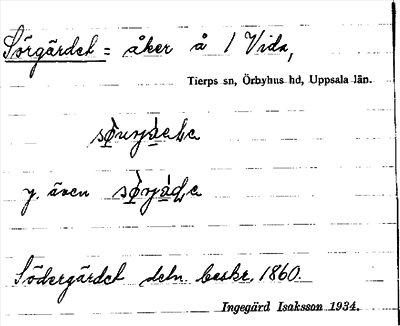 Sörgärdet = åker å 1 Vida,
Tierps sn, Örbyhus hd, Uppsala län.
y. även
Södergärdet deln. beskr. 1860.
Ingegärd Isaksson 1934.